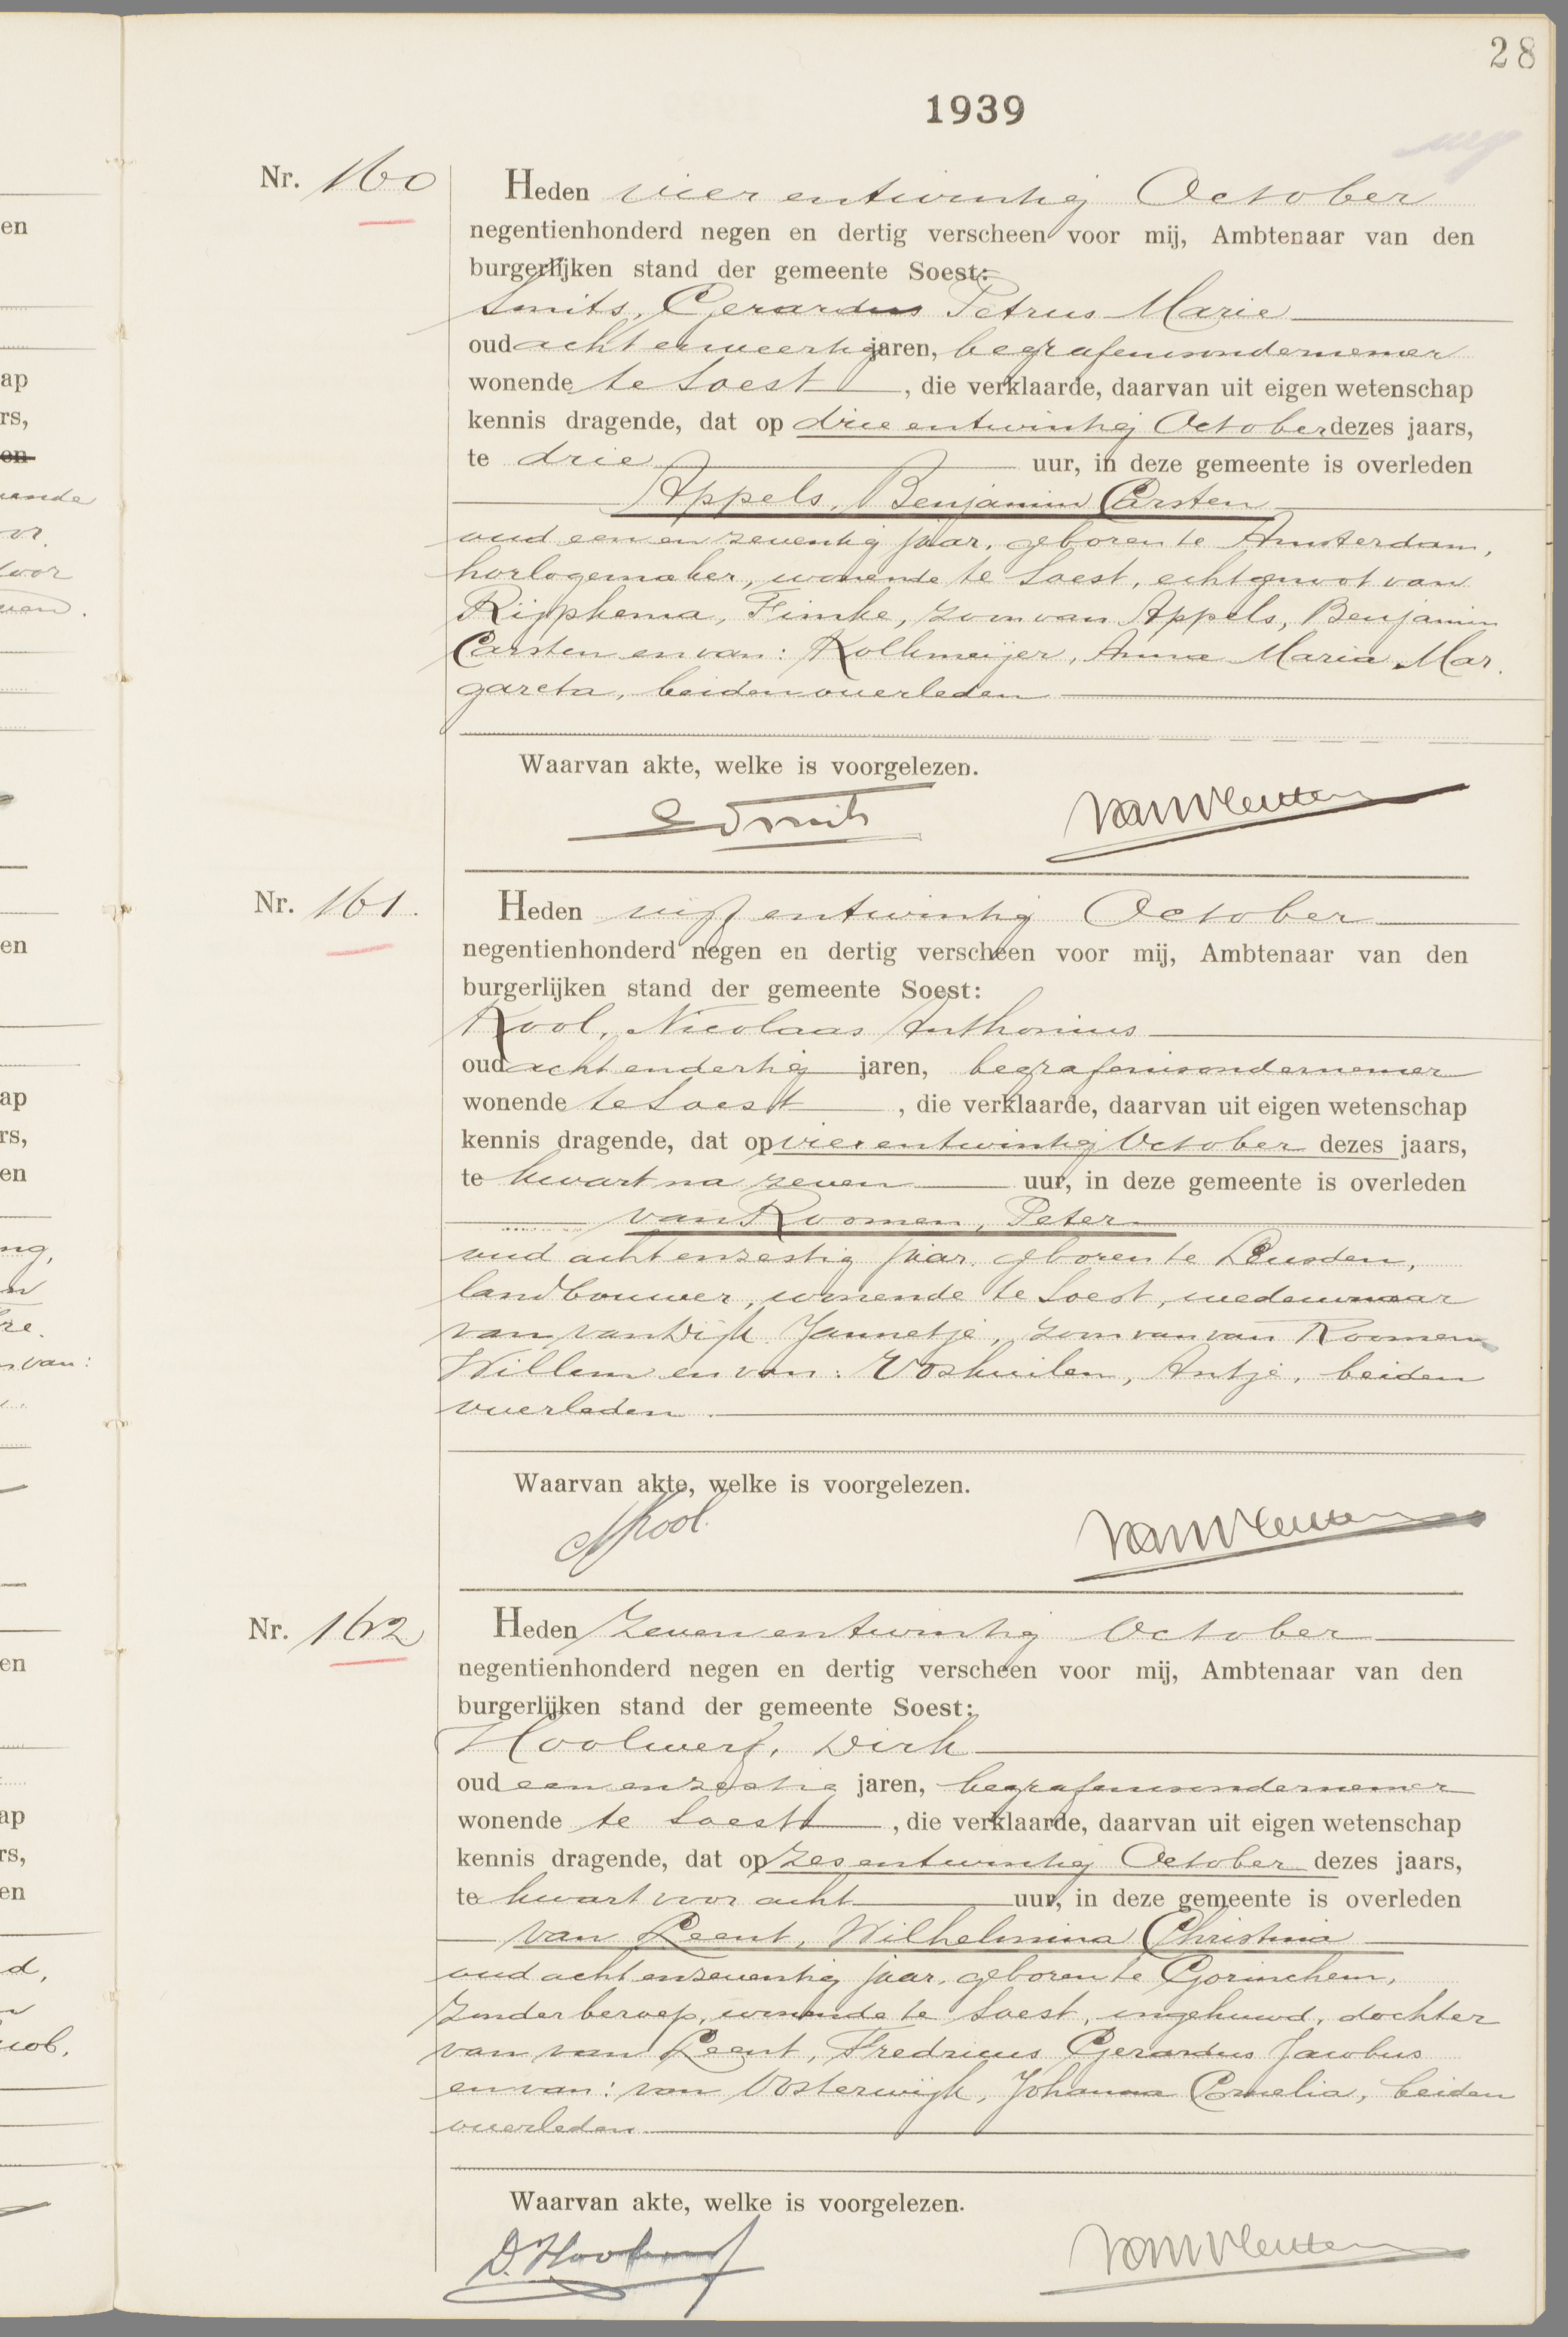 28
1939
Nr. 160
Heden vier en twintig October
negentienhonderd negen en dertig verscheen voor mij, Ambtenaar van den
burgerlijken stand der gemeente Soest:
Smits, Gerardus Petrus Marie
oud acht en veertig jaren, begrafenisondernemer
wonende te Soest, die verklaarde, daarvan uit eigen wetenschap
kennis dragende, dat op drie en twintig October dezes jaars,
te drie uur, in deze gemeente is overleden
Appels, Benjamin Carsten
oud een en zeventig jaar, geboren te Amsterdam,
horlogemaker, wonende te Soest, echtgenoot van
Rijpkema, Fimke, zoon van Appels, Benjamin
Carsten en van: Kolkmeijer, Anna Maria Mar
gareta, beiden overleden
Waarvan akte, welke is voorgelezen.
Nr. 161.
Heden vijf en twintig October
negentienhonderd negen en dertig verscheen voor mij, Ambtenaar van den
burgerlijken stand der gemeente Soest:
Kool, Nicolaas Anthonius
oud acht en dertig jaren, begrafenisondernemer
wonende te Soest, die verklaarde, daarvan uit eigen wetenschap
kennis dragende, dat op vier en twintig October dezes jaars,
te kwart na zeven uur, in deze gemeente is overleden
van Roomen, Peter
oud acht en zestig jaar, geboren te Leusden,
landbouwer, wonende te Soest, weduwnaar
van van Dijk Jannetje, zoon van van Roomen
Willem en van: Voskuilen, Antje, beiden
overleden.
Waarvan akte, welke is voorgelezen.
NKool.
Nr. 162
Heden zeven en twintig October
negentienhonderd negen en dertig verscheen voor mij, Ambtenaar van den
burgerlijken stand der gemeente Soest:
Hoolwerf, Dirk
oud een en zestig jaren, begrafenisondernemer
wonende te Soest, die verklaarde, daarvan uit eigen wetenschap
kennis dragende, dat op zes en twintig October dezes jaars,
te kwart voor acht uur, in deze gemeente is overleden
van Leent, Wilhelmina Christina
oud acht en zeventig jaar, geboren te Gorinchem,
zonder beroep, wonende te Soest, ongehuwd, dochter
van van Leent, Fredricus Gerardus Jacobus
en van: van Oosterwijk, Johanna Cornelia, beiden
overleden.
Waarvan akte, welke is voorgelezen.
D. Hoolwerf